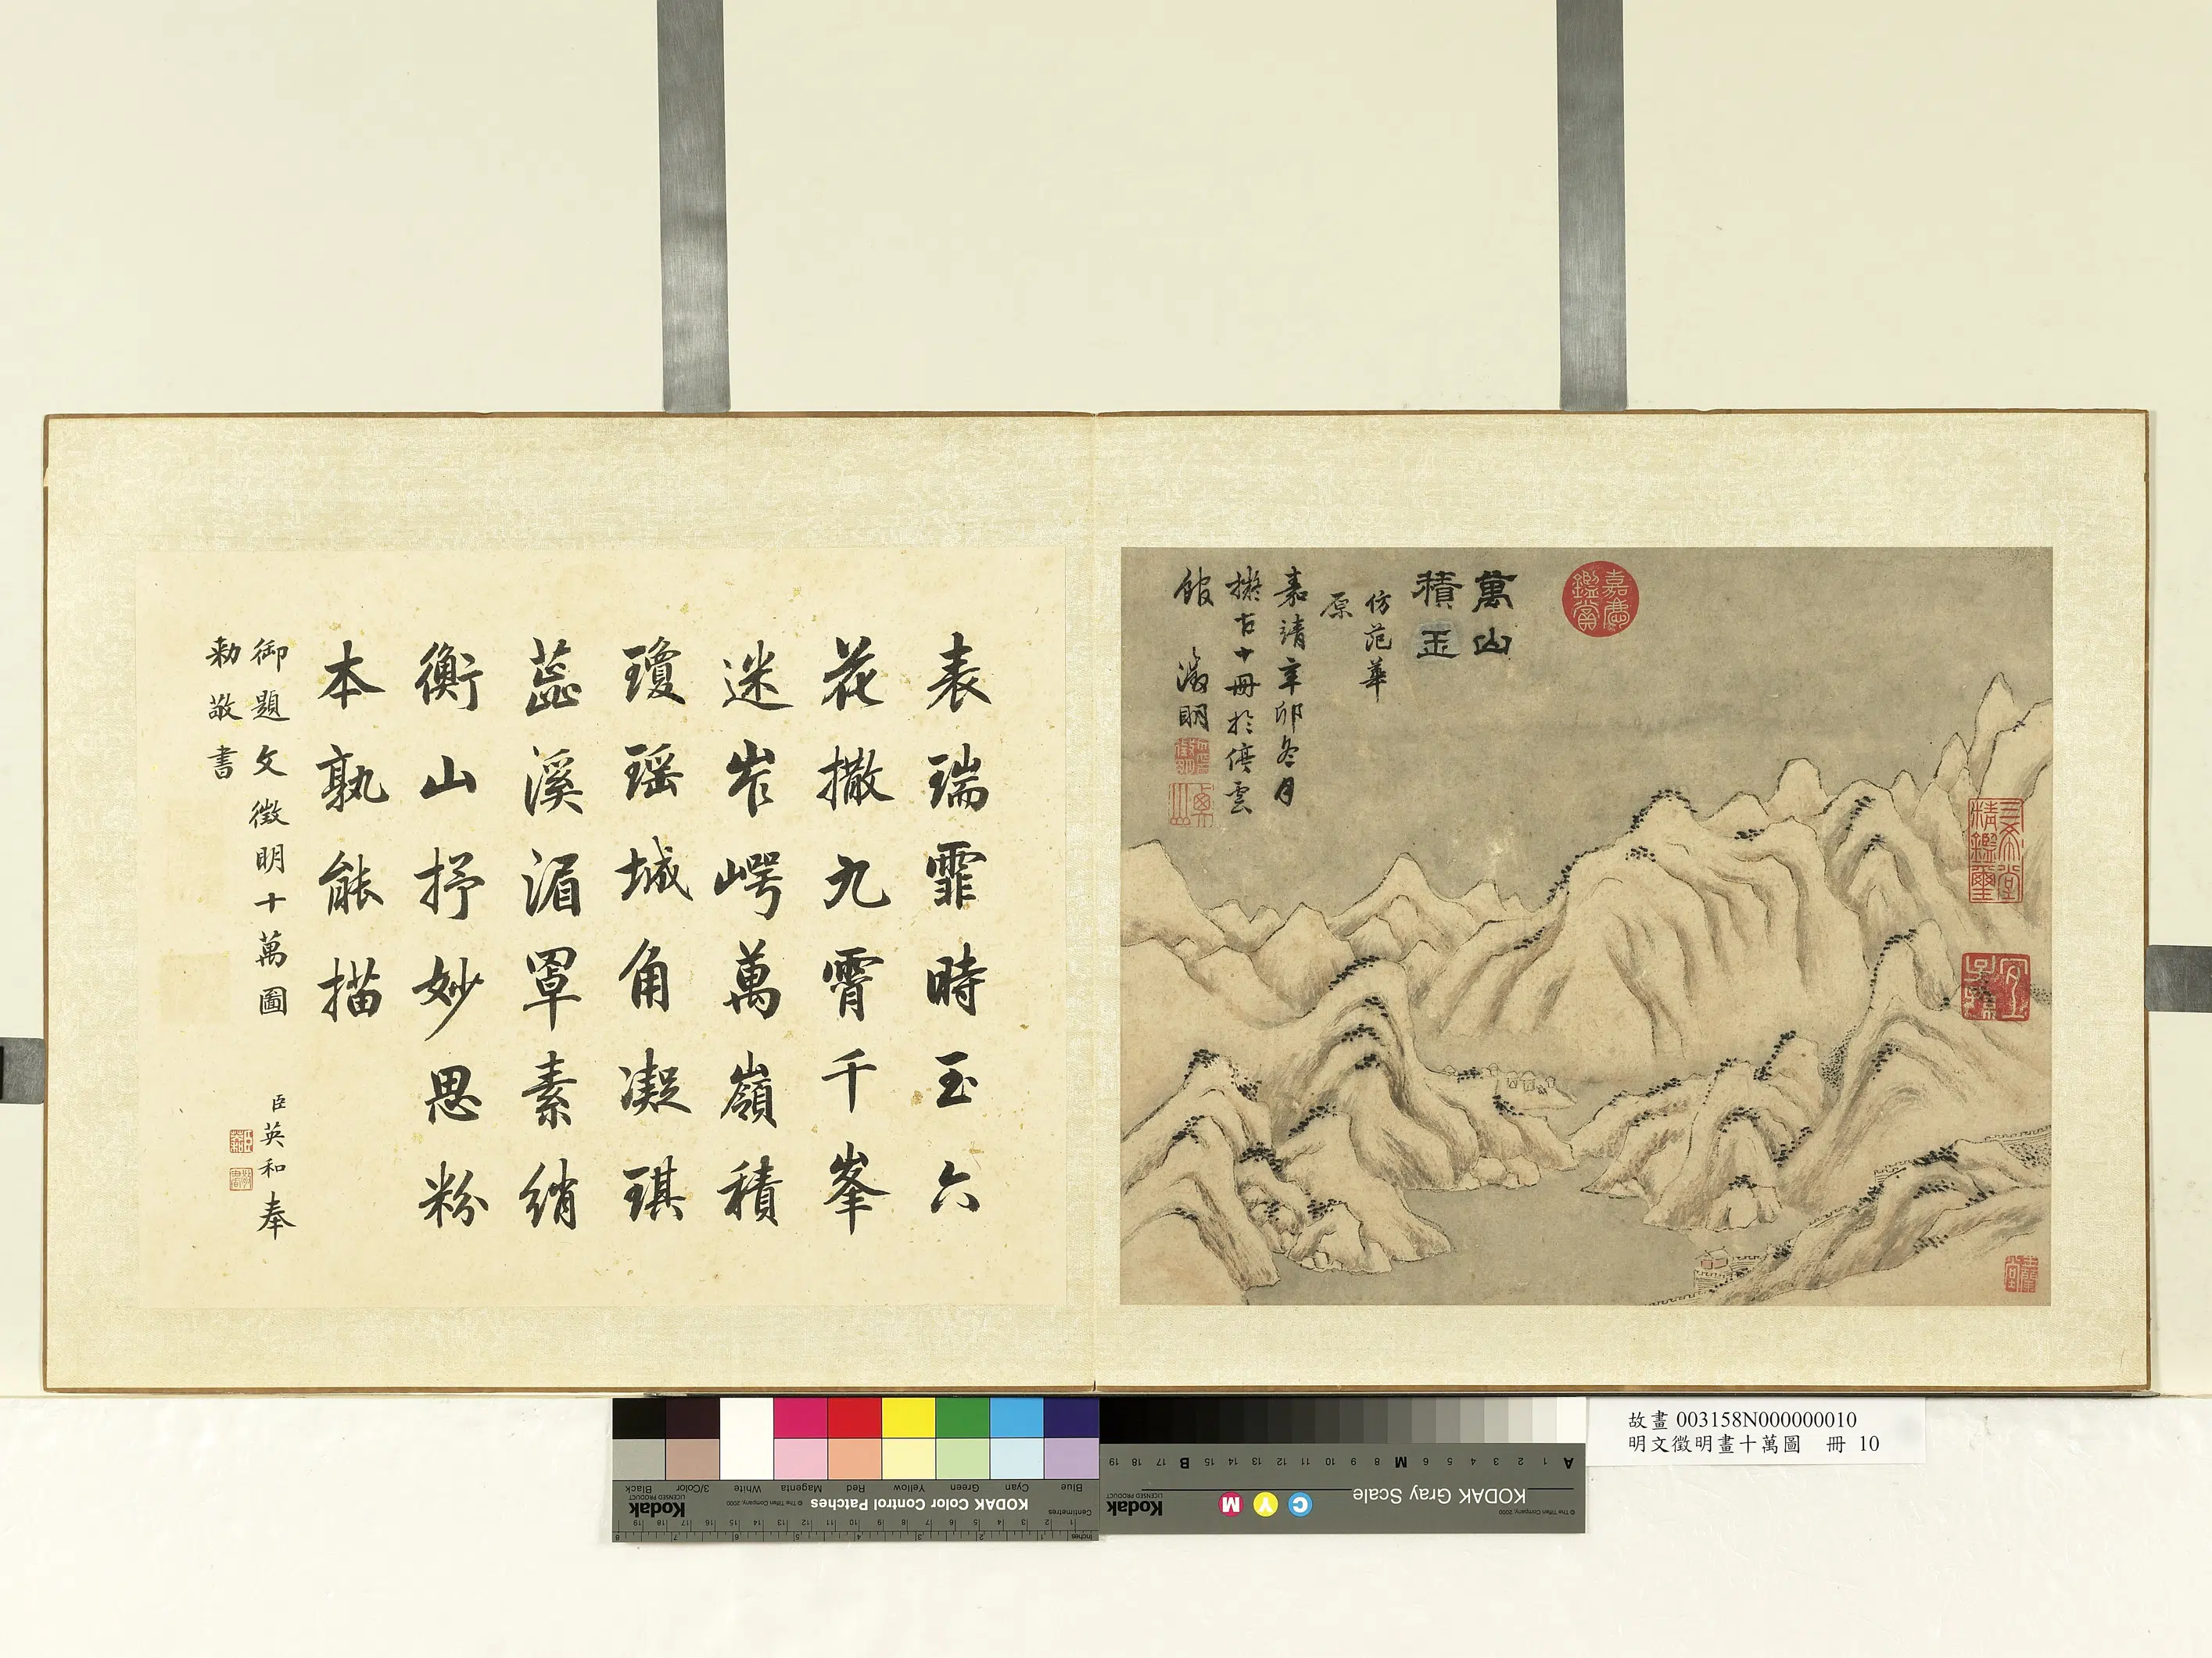 萬山
積玉
仿范華
原
嘉靖辛卯冬月
擬古十冊於停雲
館 徵明
嘉慶鑑賞
三希堂精鑑璽
宜子孫
表瑞霏時玉六
花撒九霄千峯
迷岝崿萬嶺積
瓊瑶城角凝琪
蕊溪湄罩素綃
衡山抒妙思粉
本孰能描
御題文徵明十萬圖 臣英和奉
勅敬書
故畫 003158N000000010
明文徵明畫十萬圖 冊 10
KODAK Color Control Patches
© The Tiffen Company, 2000
Kodak
LICENSED PRODUCT
Blue Cyan Green Yellow Red Magenta White 3/Color Black
Centimetres
Inches
KODAK Gray Scale
© The Tiffen Company, 2000
Kodak
LICENSED PRODUCT
C Y M
A 1 2 3 4 5 6 M 8 9 10 11 12 13 14 15 B 17 18 19